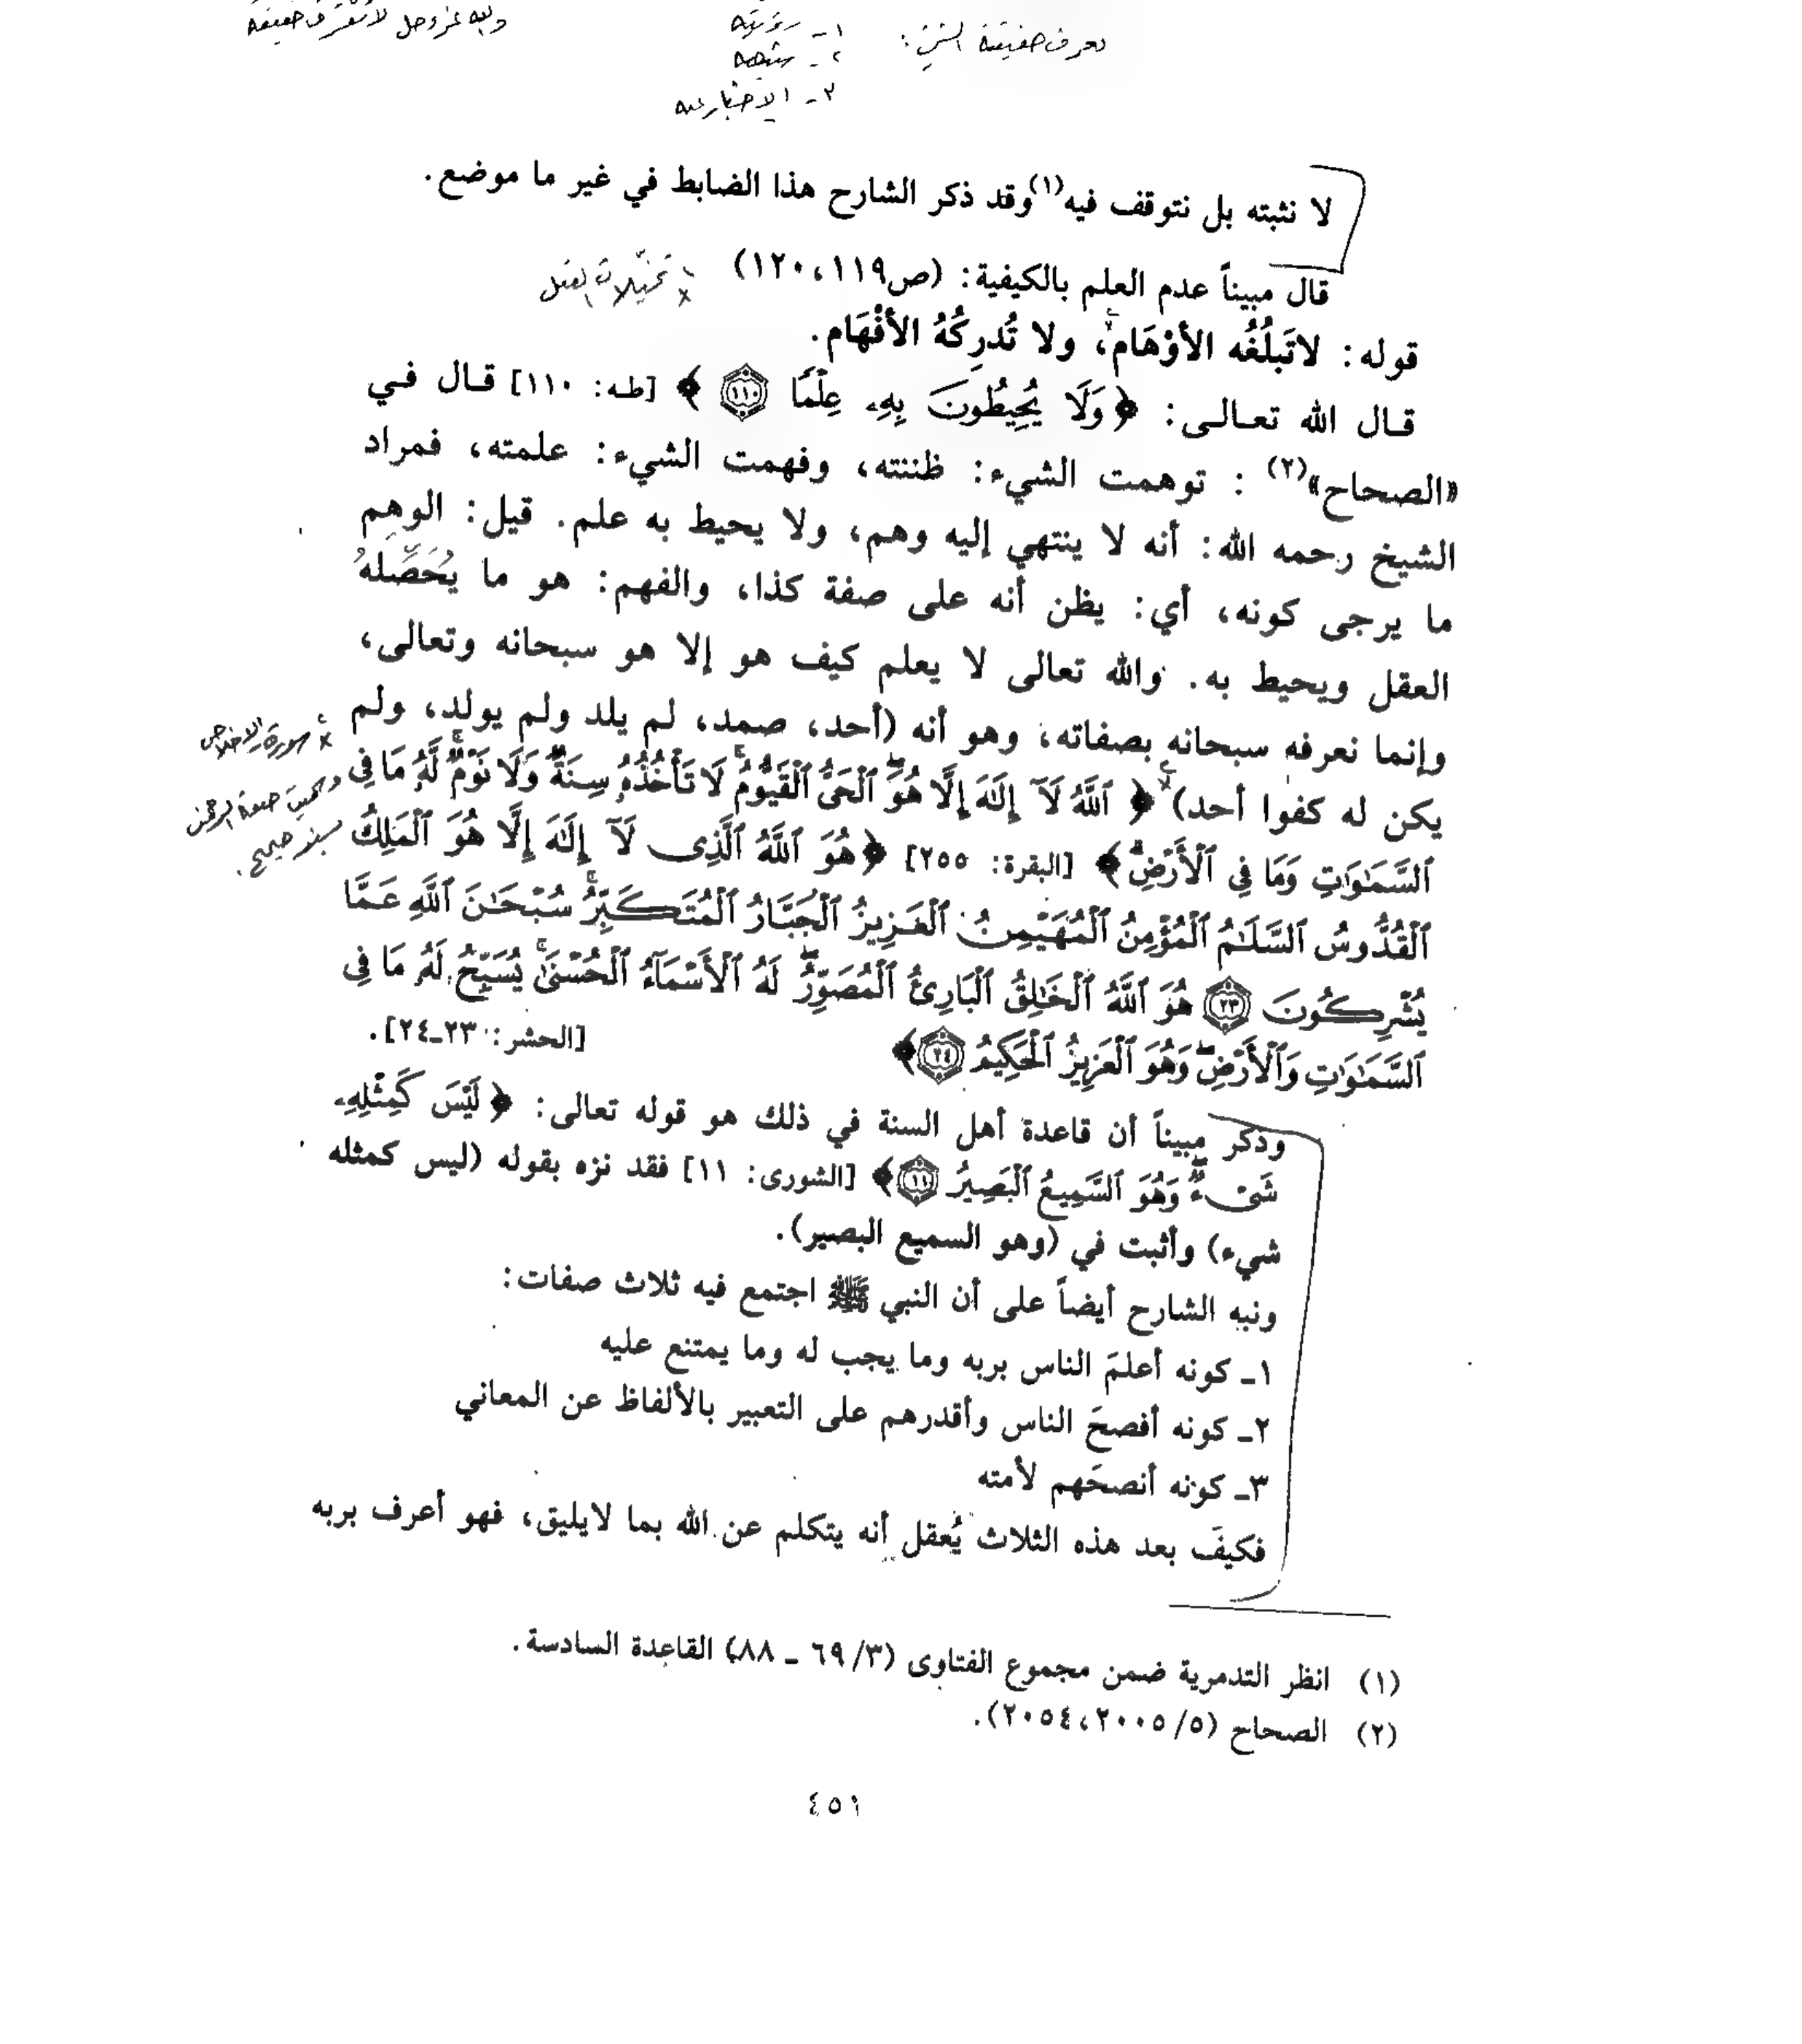 تعرف حقيقة الشيء:
١- رؤيته
٢- شبيهه
٣- الاخبار عنه
والله عز وجل لا تعرف حقيقته
لا نثبته بل نتوقف فيه(١) وقد ذكر الشارح هذا الضابط في غير ما موضع.
قال مبيناً عدم العلم بالكيفية: (ص١١٩، ١٢٠)
تخيلات العقل
قوله: لاتَبلُغُه الأوْهَام، ولا تُدرِكُهُ الأفْهَام.
قال الله تعالى: ﴿وَلَا يُحِيطُونَ بِهِۦ عِلْمًا ١١٠﴾ [طه: ١١٠] قال في
«الصحاح»(٢) : توهمت الشيء: ظننته، وفهمت الشيء: علمته، فمراد
الشيخ رحمه الله: أنه لا ينتهي إليه وهم، ولا يحيط به علم. قيل: الوهم
ما يرجى كونه، أي: يظن أنه على صفة كذا، والفهم: هو ما يُحَصِّلهُ
العقل ويحيط به. والله تعالى لا يعلم كيف هو إلا هو سبحانه وتعالى،
وإنما نعرفه سبحانه بصفاته، وهو أنه (أحد، صمد، لم يلد ولم يولد، ولم
سورة الإخلاص
يكن له كفوا أحد) ﴿ٱللَّهُ لَآ إِلَٰهَ إِلَّا هُوَ ٱلْحَىُّ ٱلْقَيُّومُ ۚ لَا تَأْخُذُهُۥ سِنَةٌ وَلَا نَوْمٌ ۚ لَّهُۥ مَا فِى
صفة الرحمن
ٱلسَّمَٰوَٰتِ وَمَا فِى ٱلْأَرْضِ ۗ﴾ [البقرة: ٢٥٥] ﴿هُوَ ٱللَّهُ ٱلَّذِى لَآ إِلَٰهَ إِلَّا هُوَ ٱلْمَلِكُ
بسند صحيح.
ٱلْقُدُّوسُ ٱلسَّلَٰمُ ٱلْمُؤْمِنُ ٱلْمُهَيْمِنُ ٱلْعَزِيزُ ٱلْجَبَّارُ ٱلْمُتَكَبِّرُ ۚ سُبْحَٰنَ ٱللَّهِ عَمَّا
يُشْرِكُونَ ٢٣ هُوَ ٱللَّهُ ٱلْخَٰلِقُ ٱلْبَارِئُ ٱلْمُصَوِّرُ ۖ لَهُ ٱلْأَسْمَآءُ ٱلْحُسْنَىٰ ۚ يُسَبِّحُ لَهُۥ مَا فِى
ٱلسَّمَٰوَٰتِ وَٱلْأَرْضِ ۖ وَهُوَ ٱلْعَزِيزُ ٱلْحَكِيمُ ٢٤﴾ [الحشر: ٢٣ـ٢٤].
وذكر مبيناً أن قاعدة أهل السنة في ذلك هو قوله تعالى: ﴿لَيْسَ كَمِثْلِهِۦ
شَىْءٌ ۖ وَهُوَ ٱلسَّمِيعُ ٱلْبَصِيرُ ١١﴾ [الشورى: ١١] فقد نزه بقوله (ليس كمثله
شيء) وأثبت في (وهو السميع البصير).
ونبه الشارح أيضاً على أن النبي ﷺ اجتمع فيه ثلاث صفات:
١ـ كونه أعلمَ الناس بربه وما يجب له وما يمتنع عليه
٢ـ كونه أفصحَ الناس وأقدرهم على التعبير بالألفاظ عن المعاني
٣ـ كونه أنصحَهم لأمته
فكيفَ بعد هذه الثلاث يُعقل أنه يتكلم عن الله بما لايليق، فهو أعرف بربه
(١) انظر التدمرية ضمن مجموع الفتاوى (٣/ ٦٩ ـ ٨٨) القاعدة السادسة.
(٢) الصحاح (٥/ ٢٠٠٥، ٢٠٥٤).
٤٥١